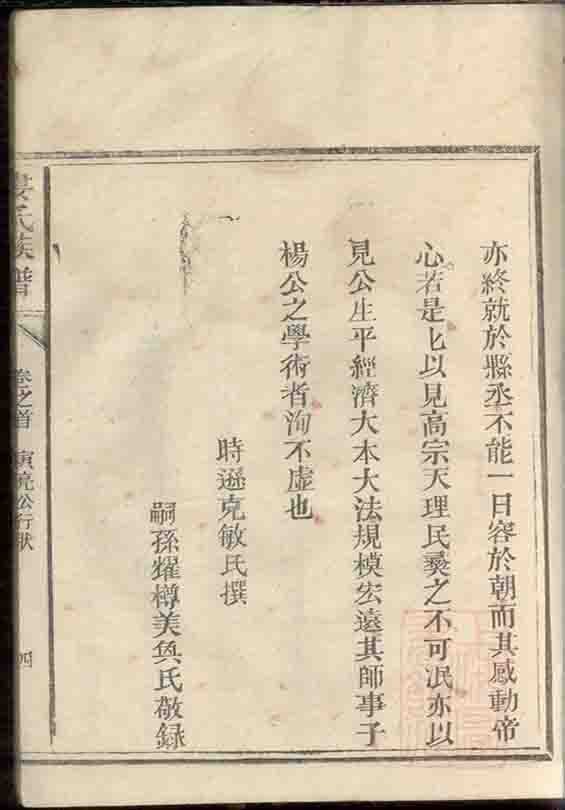 亦終就於縣丞不能一日容於朝而其感動帝
心若是匕以見高宗天理民彝之不可泯亦以
見公生平經濟大本大法規模宏遠其師事子
楊公之學術者洵不虛也
時遜克敏氏撰
嗣孫耀樽美與氏敬録
婁氏族譜
卷之首
寅亮公行狀
四